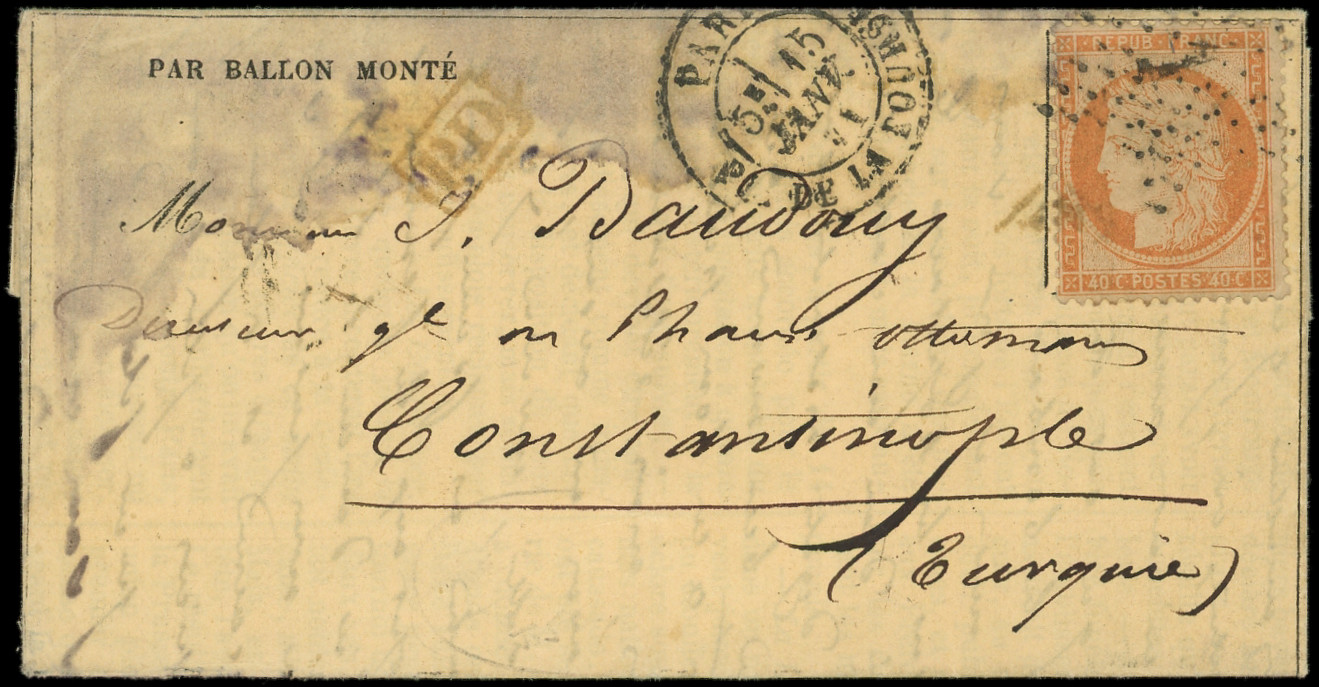 PAR BALLON MONTÉ
PD
PARIS
5E/ 15
JANV.
71
REPUB. FRANC.
40·C·POSTES·40·C
Monsieur J. Baudouy
Directeur gl des Phares ottomans
Constantinople
(Turquie)